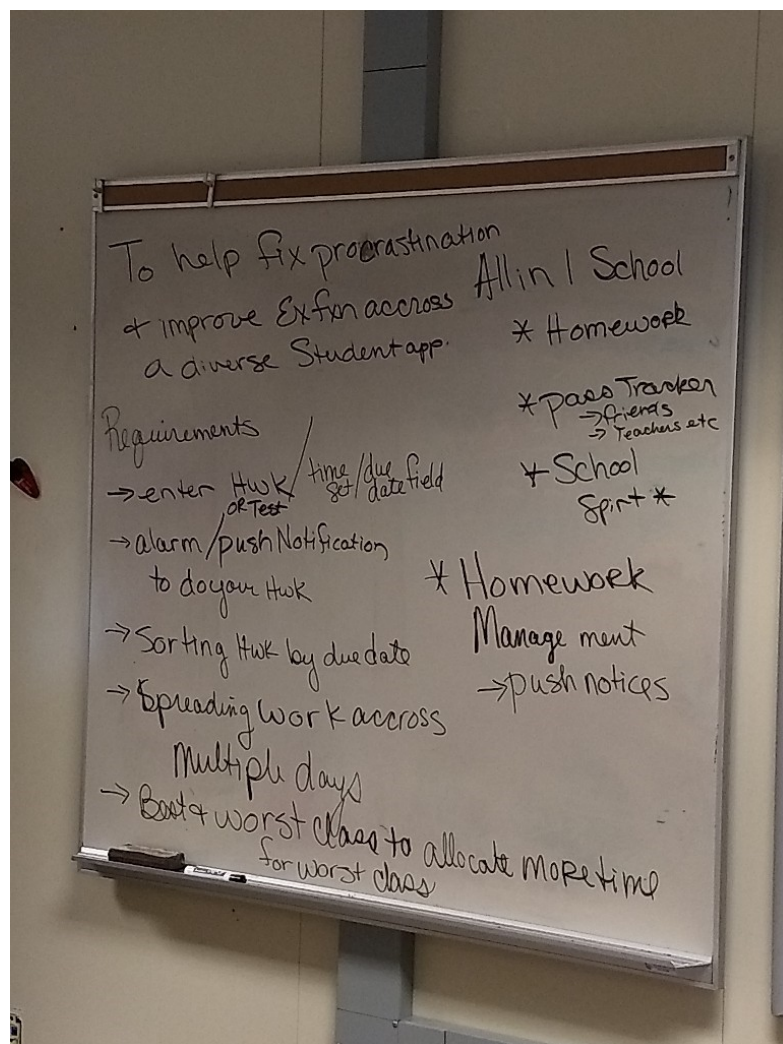 To help fix procrastination
& improve Exfxn accross
a diverse Student app.
Requirements
→ enter HWK / time set / due date field
OR Test
→ alarm / push Notification
to do your HWK
→ Sorting HWK by due date
→ Spreading work accross
Multiple days
→ Best & worst class to allocate more time
for worst class
All in 1 School
* Homework
* pass Tracker
→ friends
→ Teachers etc
* School
Spirt *
* Homework
Manage ment
→ push notices